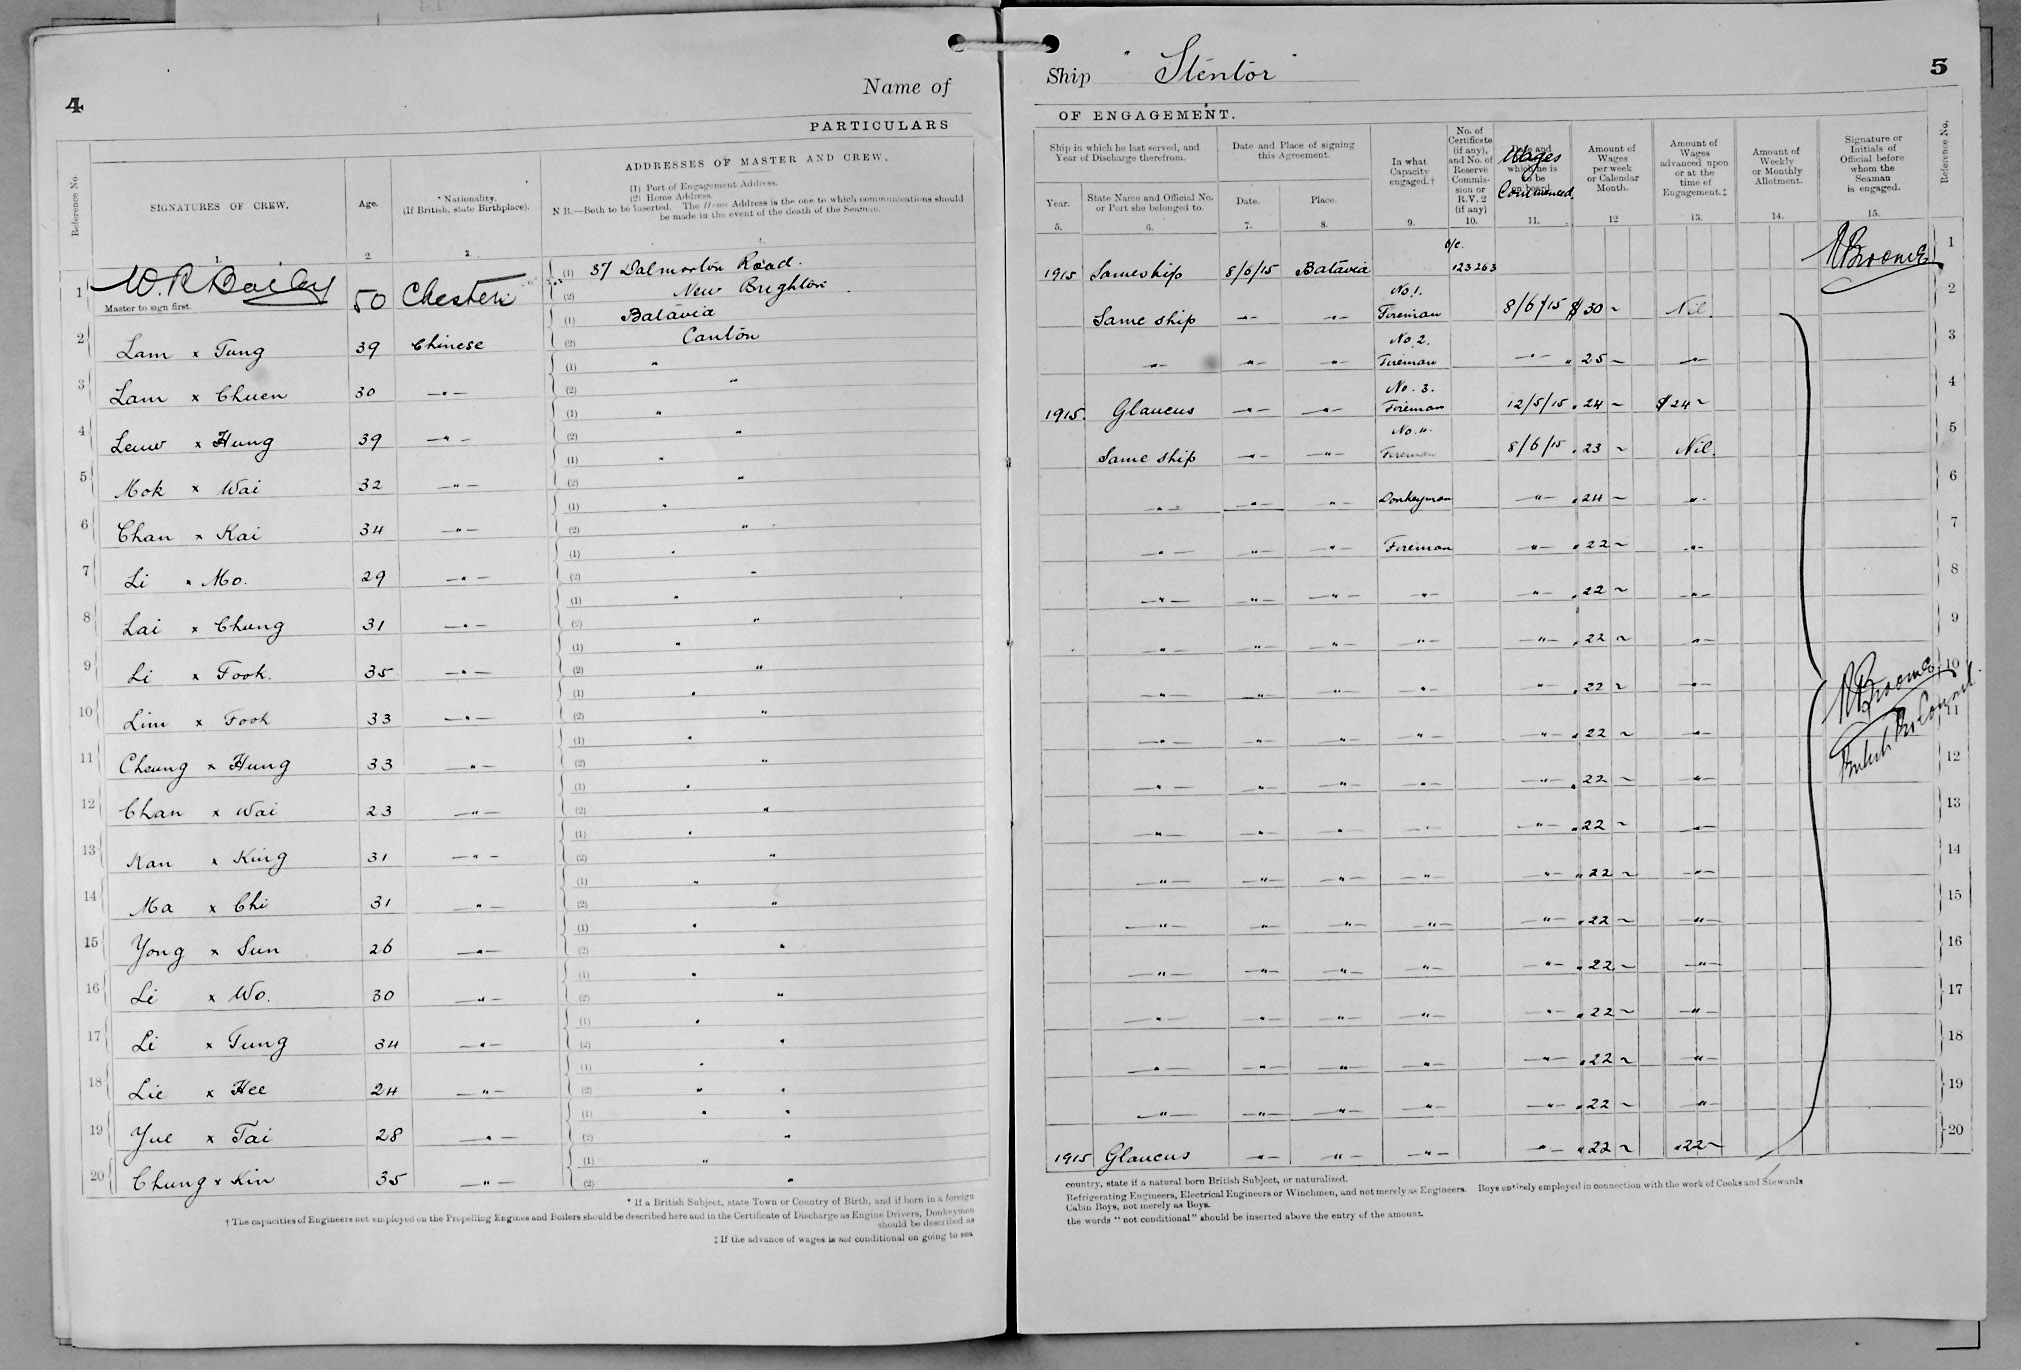 4
Name of
PARTICULARS
Reference No.
SIGNATURES OF CREW.
Age.
*Nationality.
(If British, state Birthplace).
ADDRESSES OF MASTER AND CREW.
(1) Port of Engagement Address.
(2) Home Address.
N.B.—Both to be inserted. The Home Address is the one to which communications should
be made in the event of the death of the Seaman.
1. 2. 3. 4.
1 W. R. Bailey 50 Chester (1) 37 Dalmorton Road.
Master to sign first. (2) New Brighton
2 Lam x Tung 39 Chinese (1) Batavia
(2) Canton
3 Lam x Chuen 30 —"— (1) "
(2) "
4 Leuw x Hung 39 —"— (1) "
(2) "
5 Mok x Wai 32 —"— (1) "
(2) "
6 Chan x Kai 34 —"— (1) "
(2) "
7 Li x Mo. 29 —"— (1) "
(2) "
8 Lai x Chung 31 —"— (1) "
(2) "
9 Li x Fook. 35 —"— (1) "
(2) "
10 Lim x Fook 33 —"— (1) "
(2) "
11 Cheung x Hung 33 —"— (1) "
(2) "
12 Chan x Wai 23 —"— (1) "
(2) "
13 x King 31 —"— (1) "
(2) "
14 Ma x Chi 31 —"— (1) "
(2) "
15 Yong x Sun 26 —"— (1) "
(2) "
16 Li x Wo. 30 —"— (1) "
(2) "
17 Li x Tung 34 —"— (1) "
(2) "
18 Lie x Hee 24 —"— (1) "
(2) " "
19 Yue x Tai 28 —"— (1) " "
(2) "
20 Chung x Kin 35 —"— (1) "
(2) "
* If a British Subject, state Town or Country of Birth, and if born in a foreign
† The capacities of Engineers not employed on the Propelling Engines and Boilers should be described here and in the Certificate of Discharge as Engine Drivers, Donkeymen
should be described as
‡ If the advance of wages is not conditional on going to sea
Ship "Stentor"
5
OF ENGAGEMENT.
Ship in which he last served, and
Year of Discharge therefrom.
Year.
State Name and Official No.
or Port she belonged to.
Date and Place of signing
this Agreement.
Date.
Place.
In what
Capacity
engaged.†
No. of
Certificate
(if any),
and No. of
Reserve
Commis-
sion or
R.V.2
(if any)
Wages
Commenced.
Amount of
Wages
per week
or Calendar
Month.
Amount of
Wages
advanced upon
or at the
time of
Engagement.‡
Amount of
Weekly
or Monthly
Allotment.
Signature or
Initials of
Official before
whom the
Seaman
is engaged.
Reference No.
5. 6. 7. 8. 9. 10. 11. 12 13. 14. 15.
1915 Same ship 8/6/15 Batavia 123263 1
Same ship —"— —"— No. 1. Fireman 8/6/15 $ 30 ~ Nil. 2
—"— —"— —"— No. 2. Fireman —"— " 25 ~ —"— 3
1915. Glaucus —"— —"— No. 3. Fireman 12/5/15 " 24 ~ $ 24 ~ 4
Same ship —"— —"— No. 4. Fireman 8/6/15 " 23 ~ Nil. 5
—"— —"— —"— Donkeyman —"— " 24 ~ —"— 6
—"— —"— —"— Fireman —"— " 22 ~ —"— 7
—"— —"— —"— —"— —"— " 22 ~ —"— 8
—"— —"— —"— —"— —"— " 22 ~ —"— 9
—"— —"— —"— —"— —"— " 22 ~ —"— 10
—"— —"— —"— —"— —"— " 22 ~ —"— 11
British Pro Consul.
—"— —"— —"— —"— —"— " 22 ~ —"— 12
—"— —"— —"— —"— —"— " 22 ~ —"— 13
—"— —"— —"— —"— —"— " 22 ~ —"— 14
—"— —"— —"— —"— —"— " 22 ~ —"— 15
—"— —"— —"— —"— —"— " 22 ~ —"— 16
—"— —"— —"— —"— —"— " 22 ~ —"— 17
—"— —"— —"— —"— —"— " 22 ~ —"— 18
—"— —"— —"— —"— —"— " 22 ~ —"— 19
1915 Glaucus —"— —"— —"— —"— " 22 ~ " 22 ~ 20
country, state if a natural born British Subject, or naturalized.
Refrigerating Engineers, Electrical Engineers or Winchmen, and not merely as Engineers. Boys entirely employed in connection with the work of Cooks and Stewards
Cabin Boys, not merely as Boys.
the words "not conditional" should be inserted above the entry of the amount.